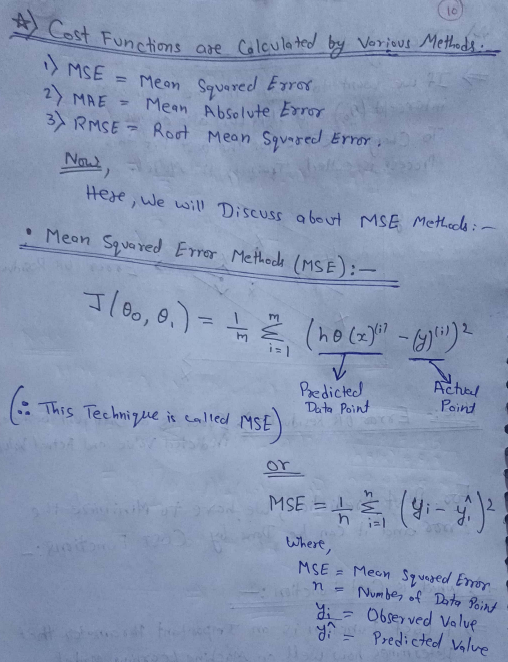 10
☆) Cost Functions are Calculated by Various Methods:-
1) MSE = Mean Squared Error
2) MAE = Mean Absolute Error
3) RMSE = Root Mean Squared Error.
Now,
Here, We will Discuss about MSE Methods:-
• Mean Squared Error Methods (MSE):-
J(θ₀, θ₁) = 1/m Σ_{i=1}^{m} (hθ(x)^{(i)} - (y)^{(i)})²
Predicted Data Point
Actual Point
(∵ This Technique is called MSE)
or
MSE = 1/n Σ_{i=1}^{n} (yi - ŷi)²
Where,
MSE = Mean Squared Error
n = Number of Data Point
yi = Observed Value
ŷi = Predicted Value